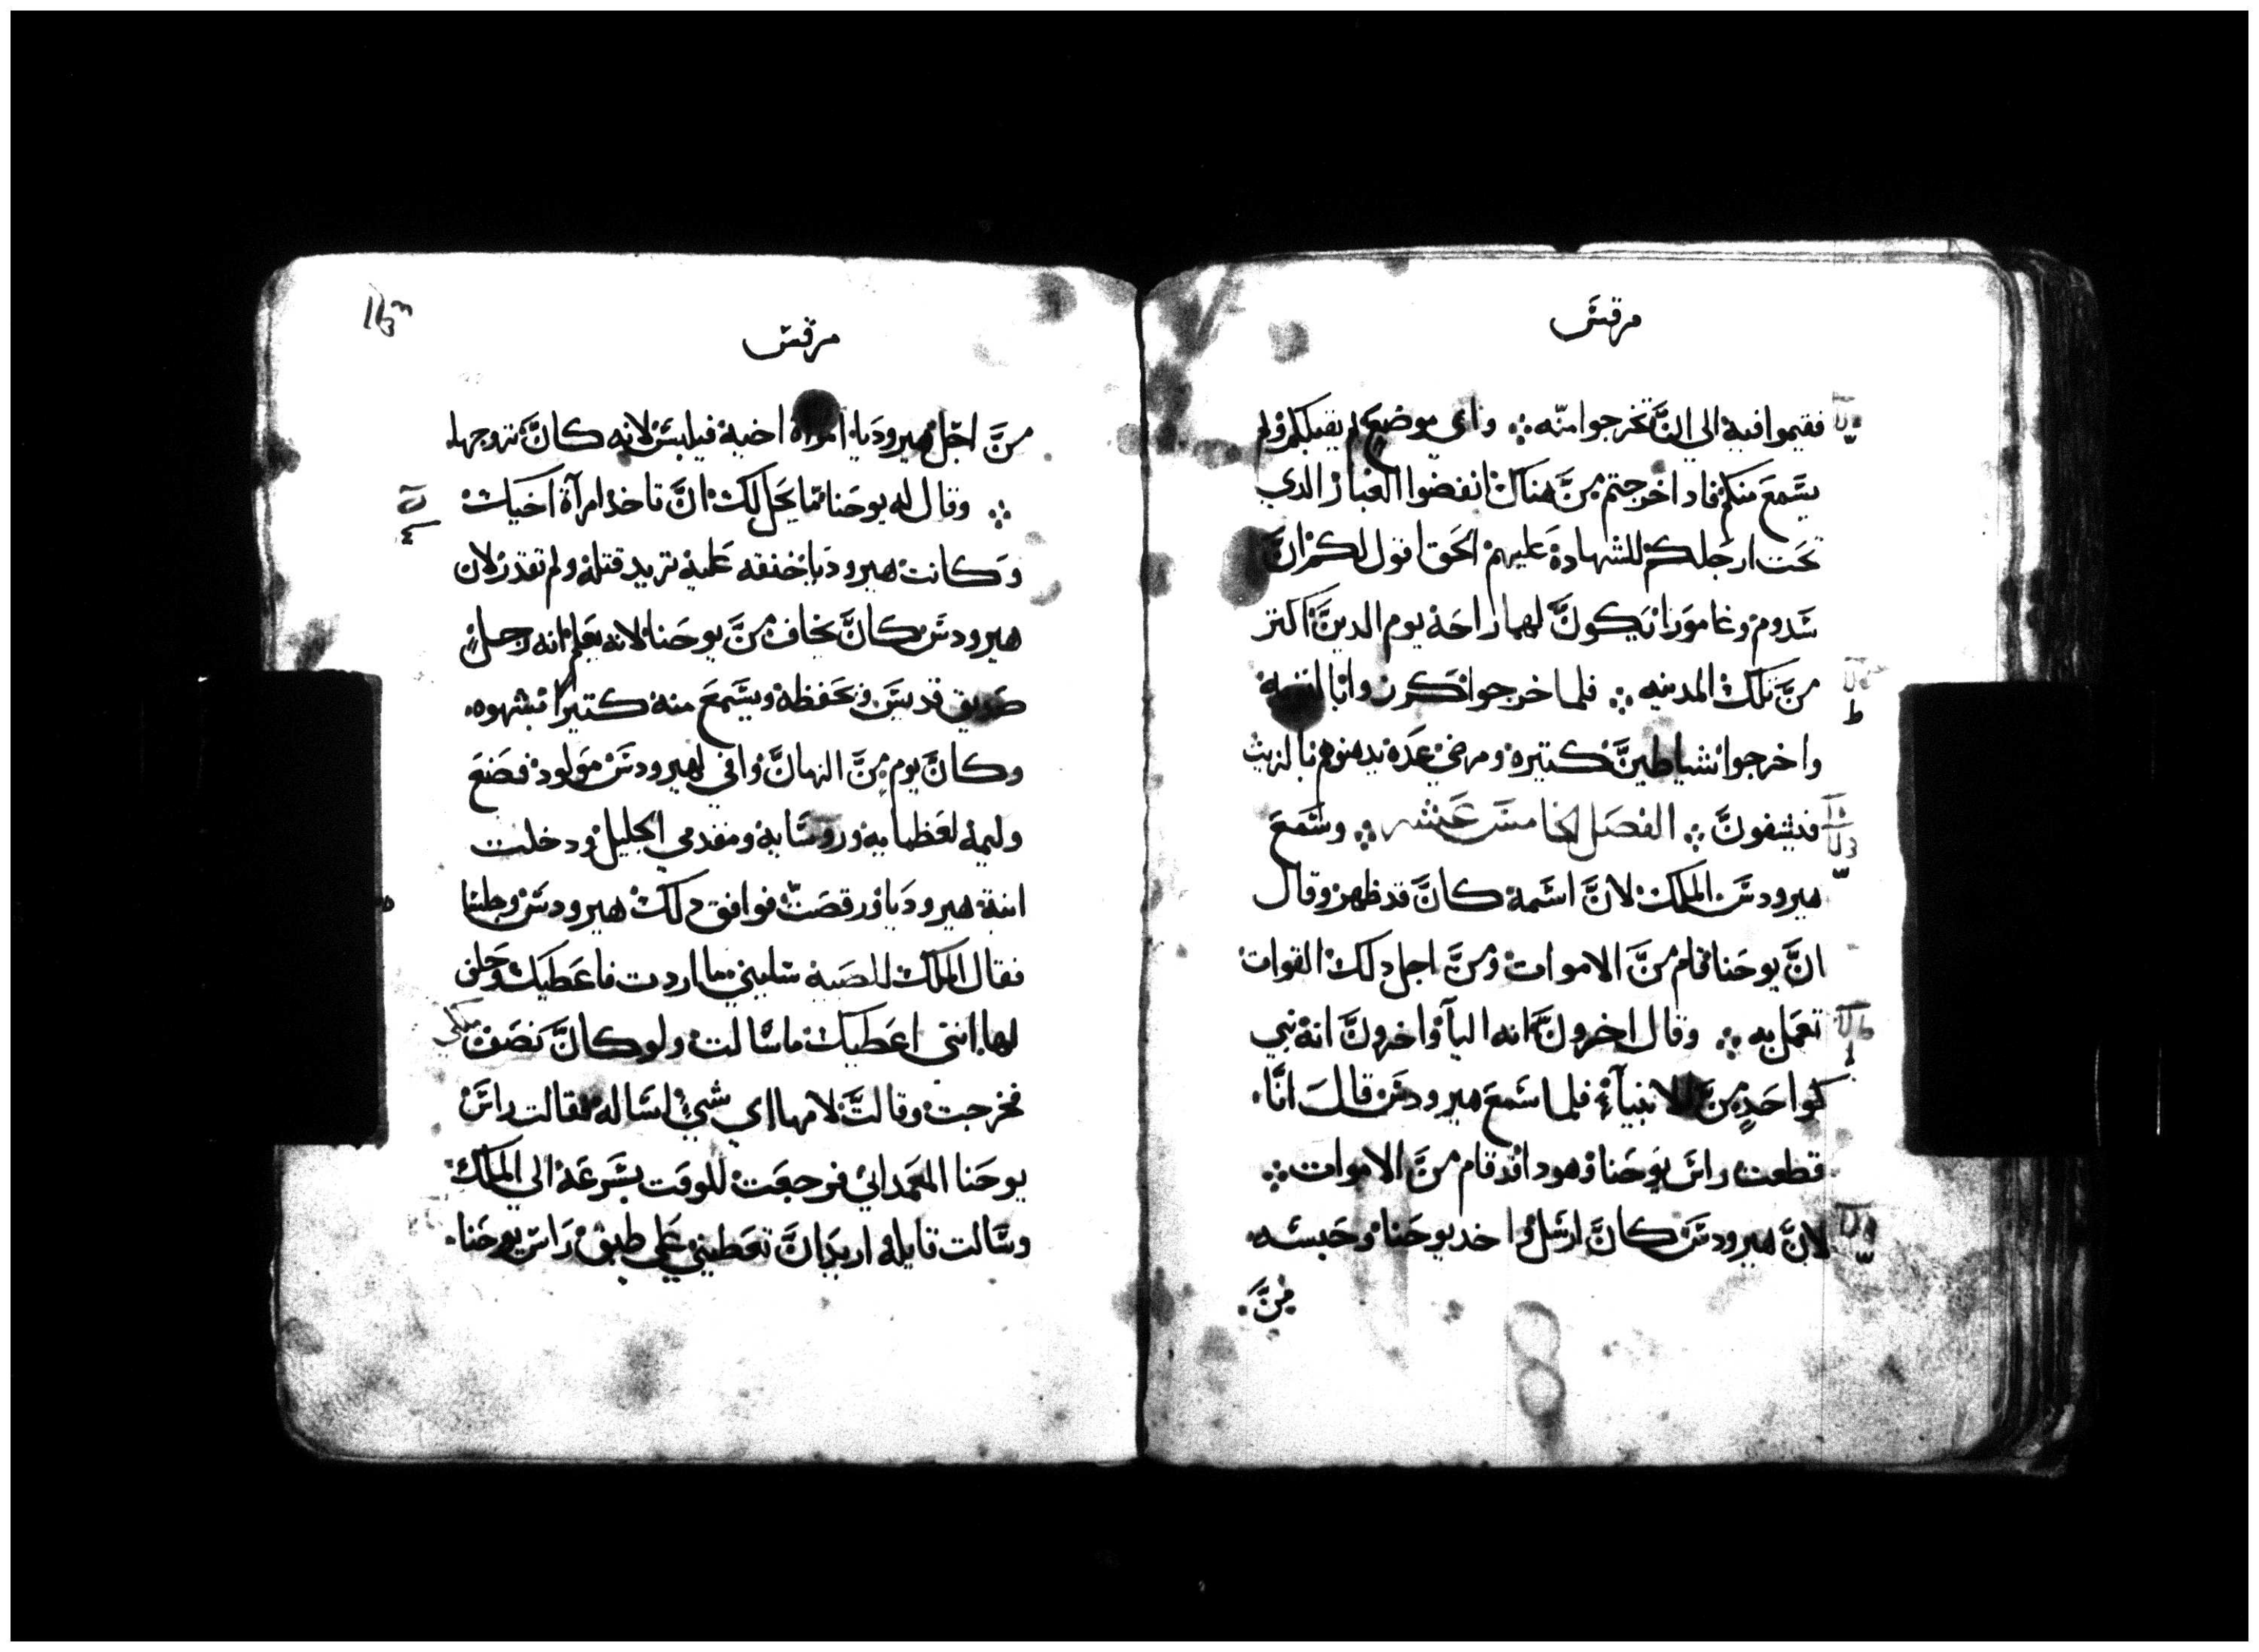 مرقس
فقيموا فيه الي ان تخرجوا منه ۞ واي موضع لم يقبلكم ولم
يسمع منكم فادا خرجتم من هناك انفضوا الغبار الدي
تحت ارجلكم للشهادة عليهم الحق اقول لكم ان
سدوم وغامورا تكون لهما راحة يوم الدين اكتر
من تلك المدينه ۞ فلما خرجوا كرزوا بالتوبة
واخرجوا شياطين كتيره ومرضي عده يدهنوهم بالزيت
فيشفون ۞ الفصل الخامس عشر ۞ وسمع
هيرودس الملك لان اسمة كان قد ظهر وقال
ان يوحنا قام من الاموات ومن اجل دلك القوات
تعمل به ۞ وقال اخرون انه اليا واخرون انه نبي
كواحد من الانبيآء فلما سمع هيرودس قال انا
قطعت راس يوحنا وهودا قد قام من الاموات ۞
لان هيرودس كان ارسل واخد يوحنا وحبسه
من
مرقس
من اجل هيروديا امراة اخيه فيلبس لانه كان تزوجها
۞ وقال له يوحنا ما يحل لك ان تاخد امرآة اخيك
وكانت هيروديا خنقه عليه تريد قتله ولم تقدر لان
هيرودس كان يخاف من يوحنا لانه يعلم انه رجل
صديق قديس ويحفظه ويسمع منه كتيرا بشهوه
وكان يوم من الزمان وافي لهيرودس مولود فصنع
وليمة لعظمايه وروسايه ومقدمي الجليل ودخلت
ابنة هيروديا ورقصت فوافق دلك هيرودس وجلسا
فقال الملك للصبية سليني ما اردت فاعطيك وحلف
لها انني اعطيك ما سالت ولو كان نصف ملكي
فخرجت وقالت لامها اي شي اساله فقالت راس
يوحنا المعمداني فرجعت للوقت بسرعة الي الملك
وسالت قايله اريد ان تعطيني علي طبق راس يوحنا